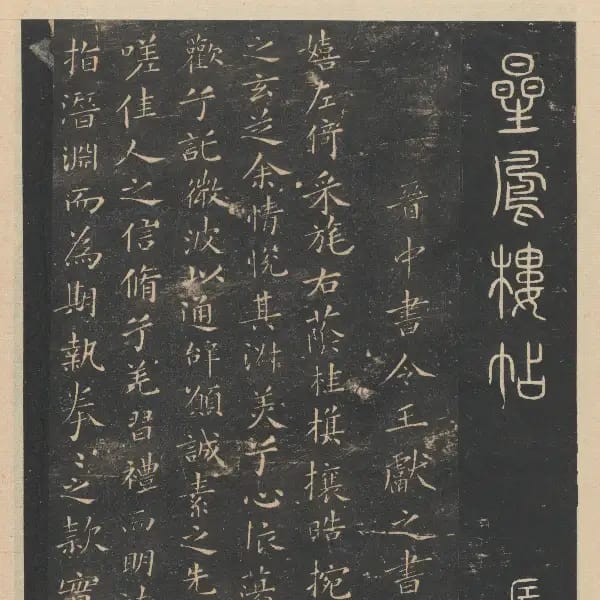 星鳳樓帖
晉中書令王獻之書
嬉左倚采旄右蔭桂旗攘皓捥
之玄芝余情悅其淑美兮心振蕩
歡兮託微波以通辭願誠素之先
嗟佳人之信脩兮羌習禮而明詩
指潛淵而為期執拳〻之款實